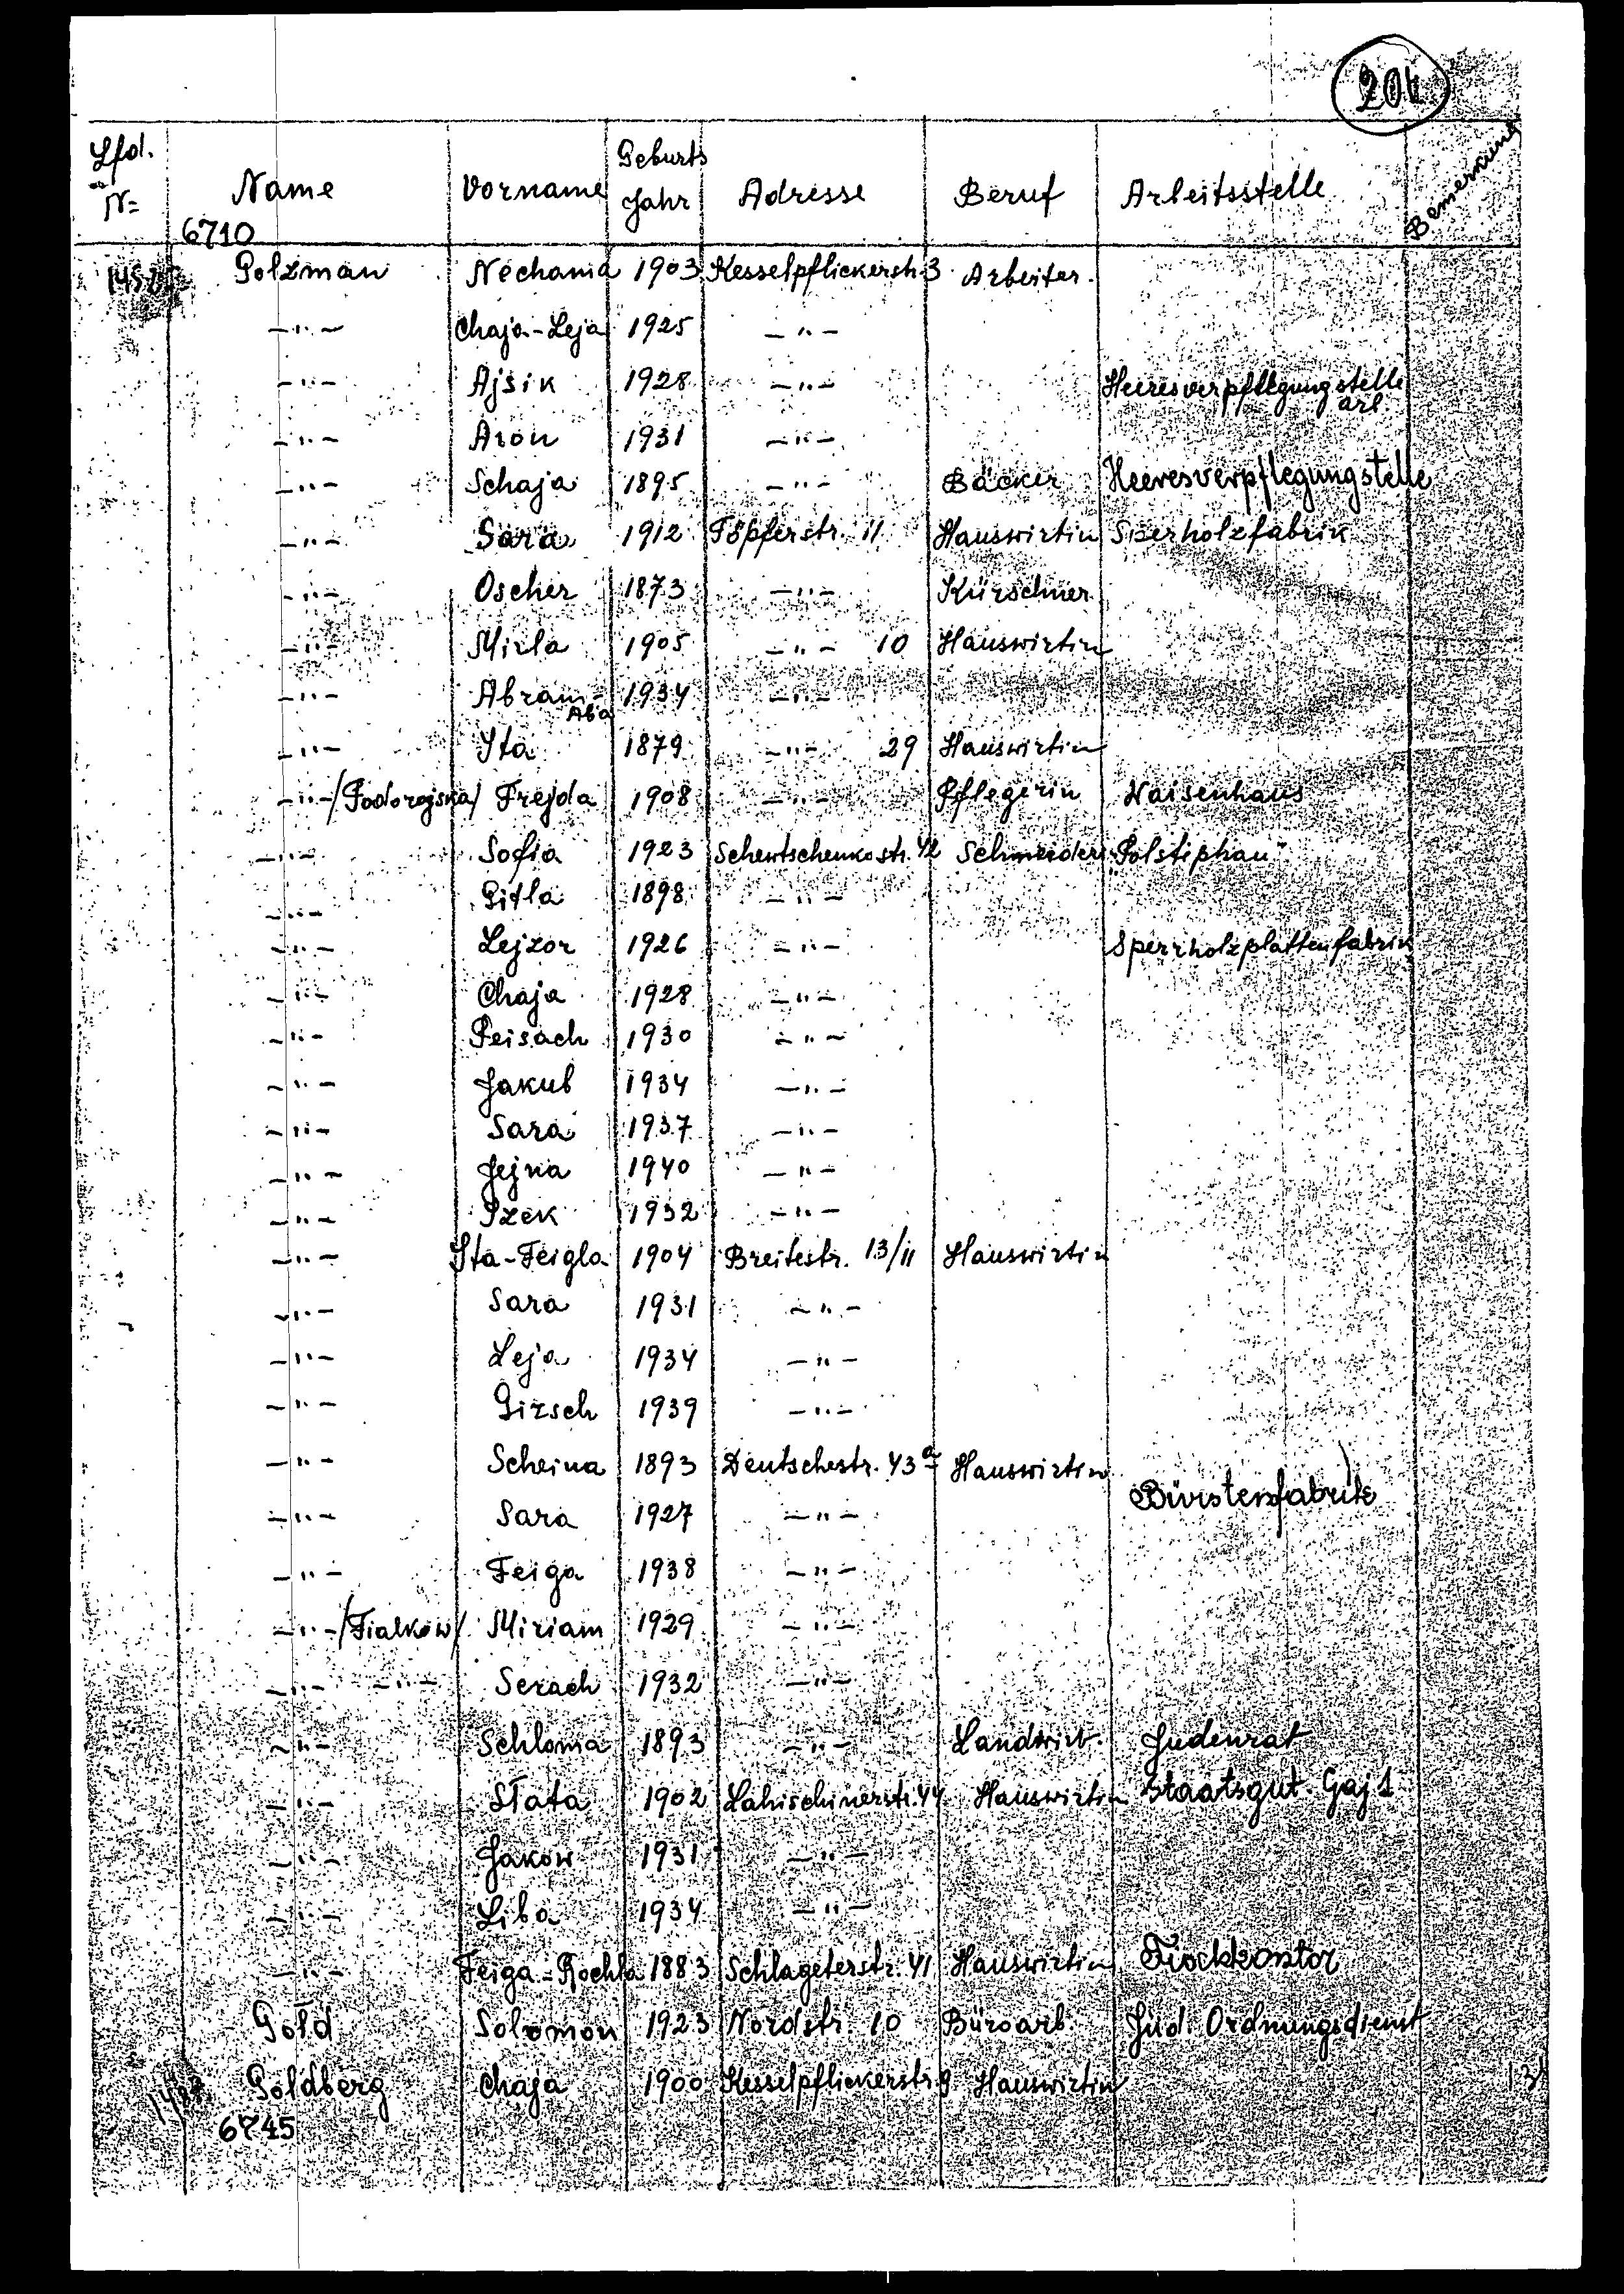 201
Lfd. Nº Name Vorname Geburts Jahr Adresse Beruf Arbeitsstelle Bemerkung
6710
Golzman Nechama 1903 Kesselpflickerstr. 3 Arbeiter.
—"— Chaja-Leja 1925 —"—
—"— Ajsik 1928 —"— Heeresverpflegungstelle arl.
—"— Aron 1931 —"—
—"— Schaja 1895 —"— Bäcker Heeresverpflegungstelle
—"— Sara 1912 Töpferstr. 11 Hauswirtin Sperholzfabrik
—"— Oscher 1873 —"— Kürschner
—"— Mirla 1905 —"— 10 Hauswirtin
—"— Abram-Aba 1934 —"—
—"— Ita 1879 —"— 29 Hauswirtin
—"— /Podorojska/ Frejda 1908 —"— Pflegerin Waisenhaus
—"— Sofia 1923 Schewtschenkostr. 42 Schneider. "Polstiphau"
—"— Gitla 1898 —"—
—"— Lejzor 1926 —"— Sperrholzplattenfabrik
—"— Chaja 1928 —"—
—"— Peisach 1930 —"—
—"— Jakub 1934 —"—
—"— Sara 1937 —"—
—"— Jejna 1940 —"—
—"— 1932 —"—
—"— Ita-Feigla 1904 Breitestr. 13/11 Hauswirtin
—"— Sara 1931 —"—
—"— Leja 1934 —"—
—"— Girsch 1939 —"—
—"— Scheina 1893 Deutschestr. 43a Hauswirtin
—"— Sara 1927 —"— Bürstenfabrik
—"— Feiga 1938 —"—
—"— /Fialkow/ Miriam 1929 —"—
—"— —"— Serach 1932 —"—
—"— Schloma 1893 —"— Landwirt. Judenrat
—"— Slata 1902 Lahischinerstr. 44 Hauswirtin Staatsgut. Gaj 1
—"— Jakow 1931 —"—
—"— Liba 1934 —"—
—"— Feiga-Rochla 1883 Schlageterstr. 41 Hauswirtin
Gold Solomon 1923 Nordstr. 10 Büroarb. Jüd. Ordnungsdienst
Goldberg Chaja 1900 Kesselpflickerstr. 9 Hauswirtin
6745